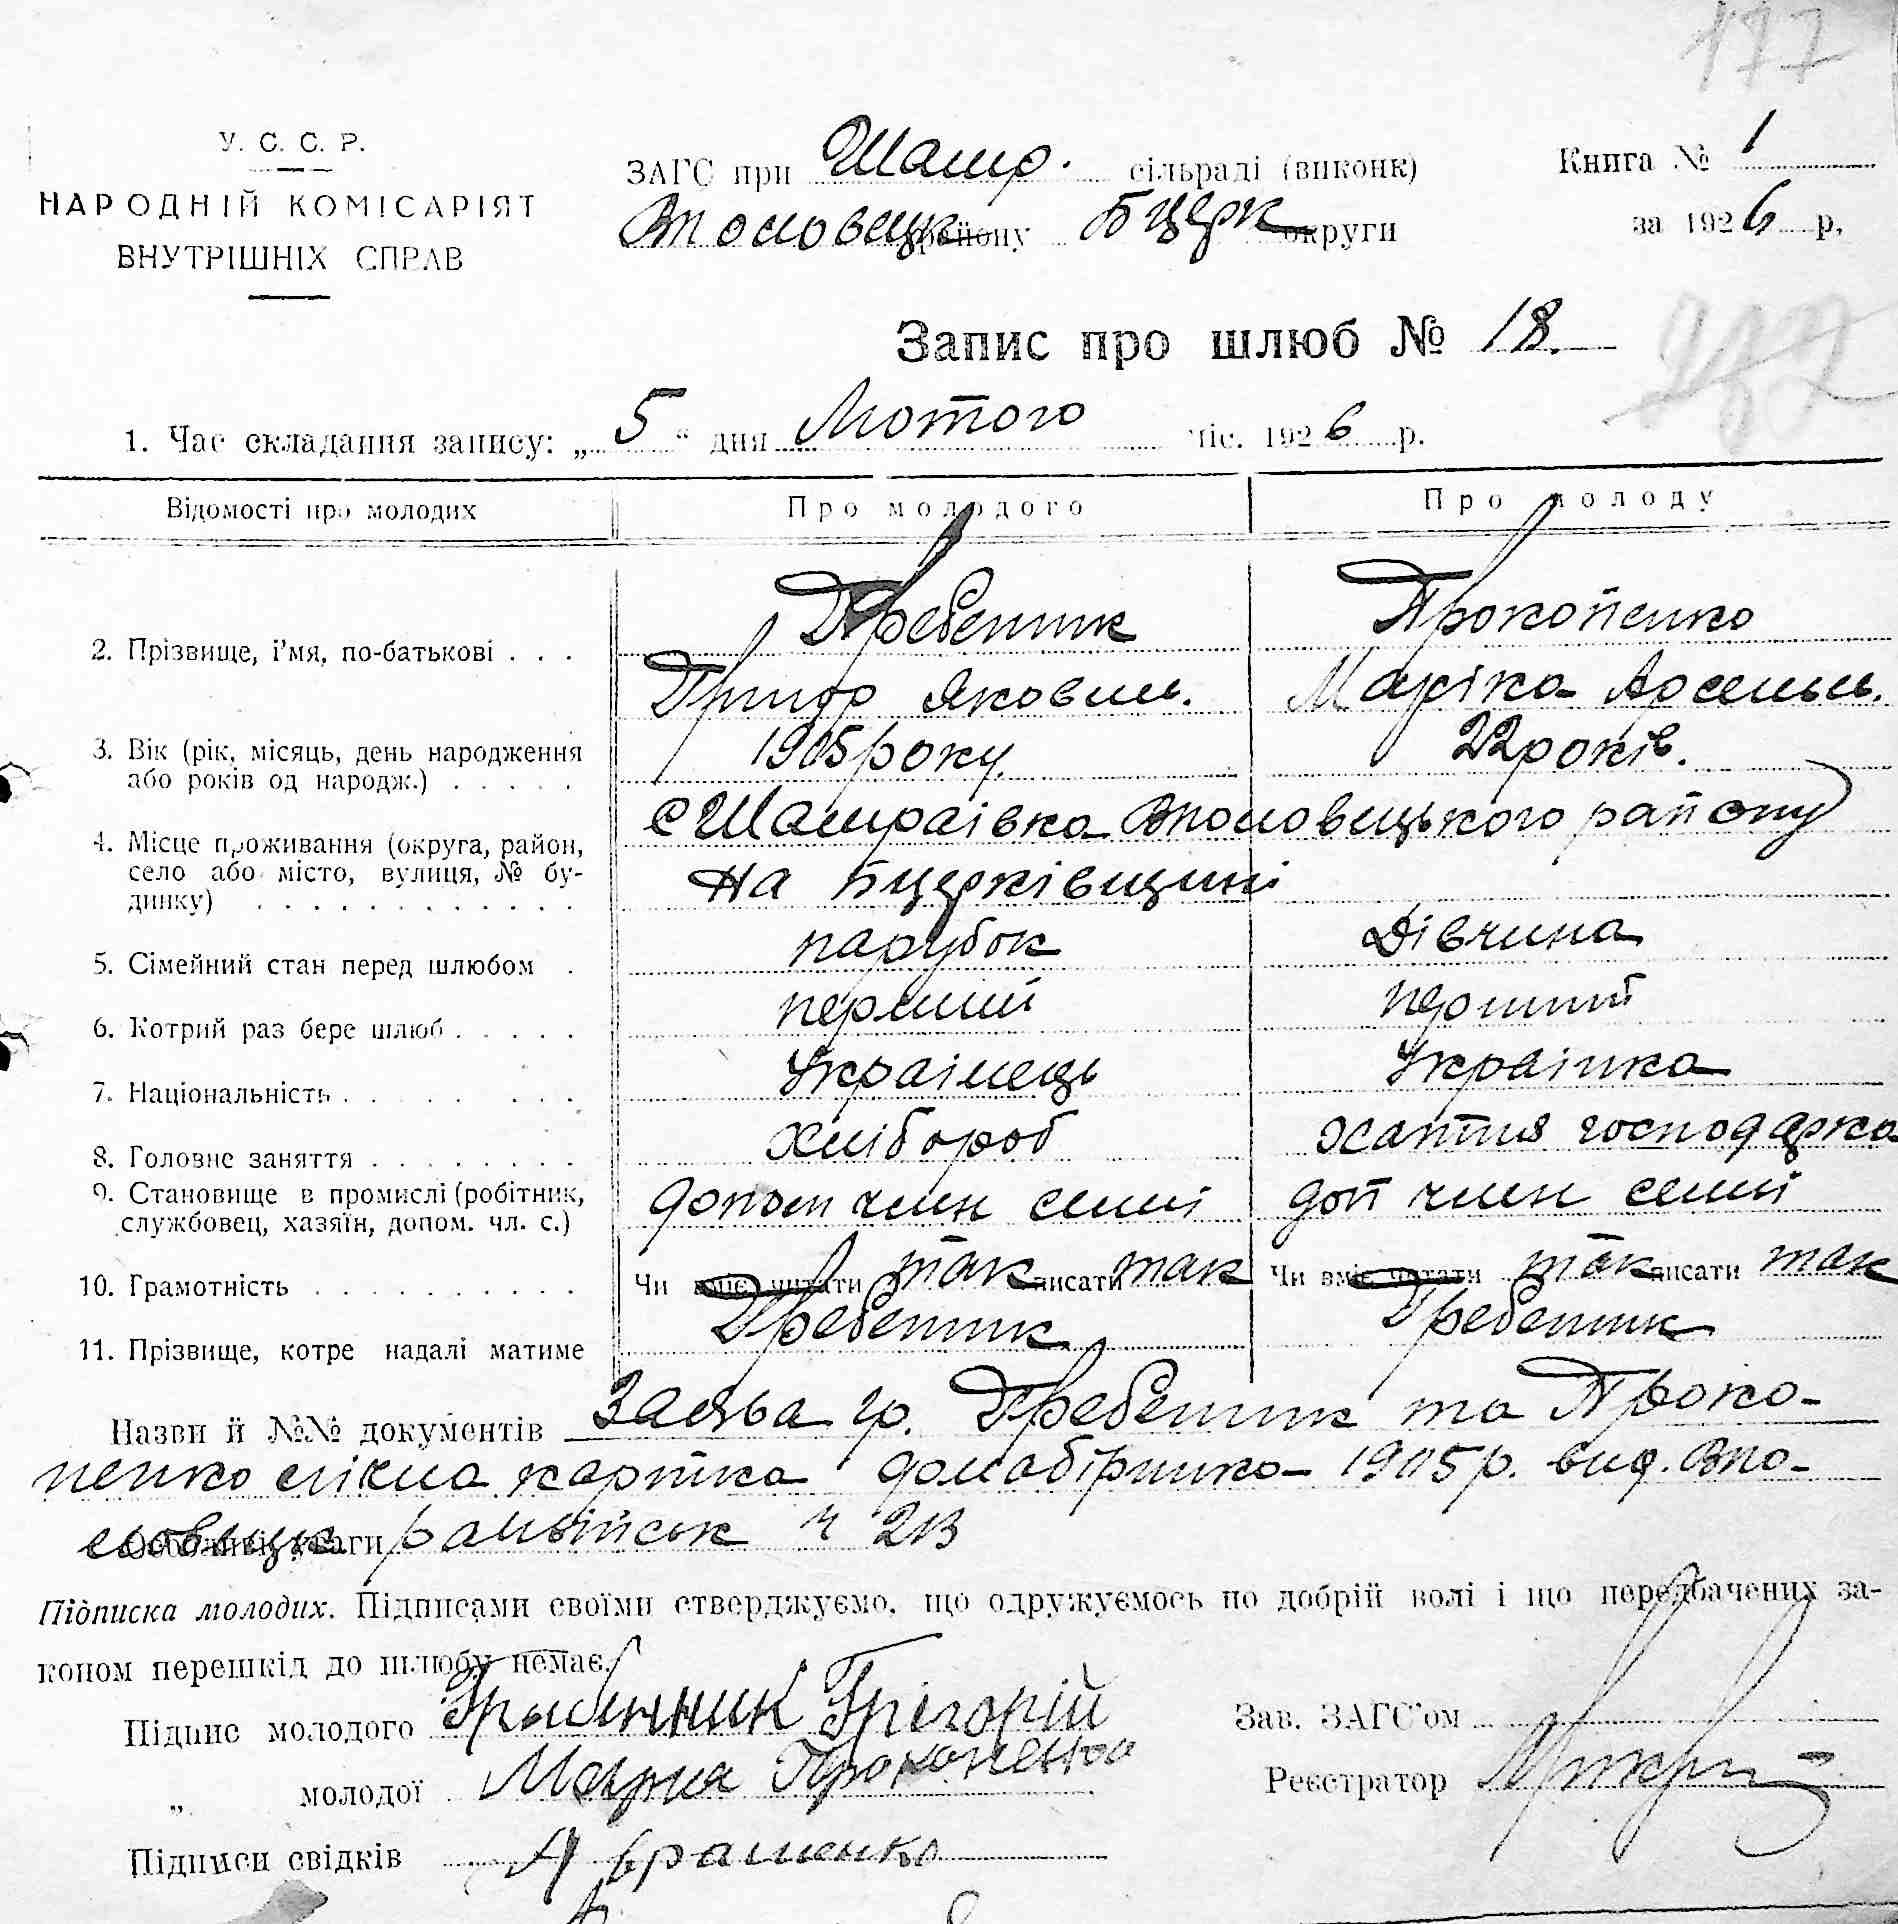 177
У. С. С. Р.
НАРОДНІЙ КОМІСАРІЯТ
ВНУТРІШНІХ СПРАВ
ЗАГС при Шатр. сільраді (виконк)
району Бцерк округи
Книга № 1
за 1926 р.
Запис про шлюб № 18.
1. Час складання запису: „5“ дня Лютого міс. 1926 р.
Відомості про молодих Про молодого Про молоду
2. Прізвище, і'мя, по-батькові . . . Гребенник Прокопенко
Григор Якович. Марійка Арсеньев.
3. Вік (рік, місяць, день народження 1905 року. 22 років.
або років од народж.) . . . . .
4. Місце проживання (округа, район, с Шатраївка району
село або місто, вулиця, № бу- на Бцерківщині
динку) . . . . . . . . . . . .
5. Сімейний стан перед шлюбом . парубок Дівчина
6. Котрий раз бере шлюб . . . . . перший перший
7. Національність . . . . . . . . Українець Українка
8. Головне заняття . . . . . . . . хлібороб хатня господарка
9. Становище в промислі (робітник, допом член семі доп член семі
службовец, хазяїн, допом. чл. с.)
10. Грамотність . . . . . . . . . . . Чи вміє читати так писати так Чи вміє читати так писати так
11. Прізвище, котре надалі матиме Гребенник Гребенник
Назви й №№ документів Заява гр. Гребенник та Проко-
пенко картка 1905 р. вид.
Особливі уваги ч 213
Підписка молодих. Підписами своїми стверджуємо, що одружуємось по добрій волі і що передбачених за-
коном перешкід до шлюбу немає.
Підпис молодого Грыбенник Грігорій
Зав. ЗАГС'ом
„ молодої Марыя Прокопенко
Реєстратор
Підписи свідків